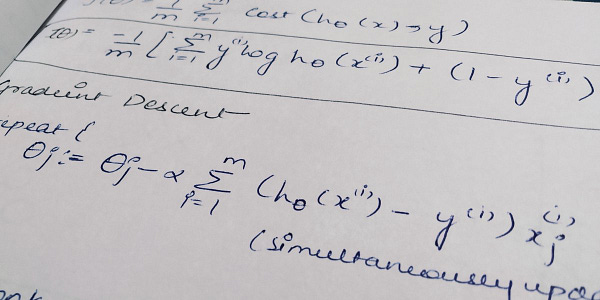 1/m Σ_{i=1}^{m} Cost (hθ(x), y)
J(θ) = -1/m [ Σ_{i=1}^{m} y^{(i)} log hθ(x^{(i)}) + (1 - y^{(i)})
Gradient Descent
repeat {
θj := θj - α Σ_{i=1}^{m} (hθ(x^{(i)}) - y^{(i)}) x_j^{(i)}
(simultaneously